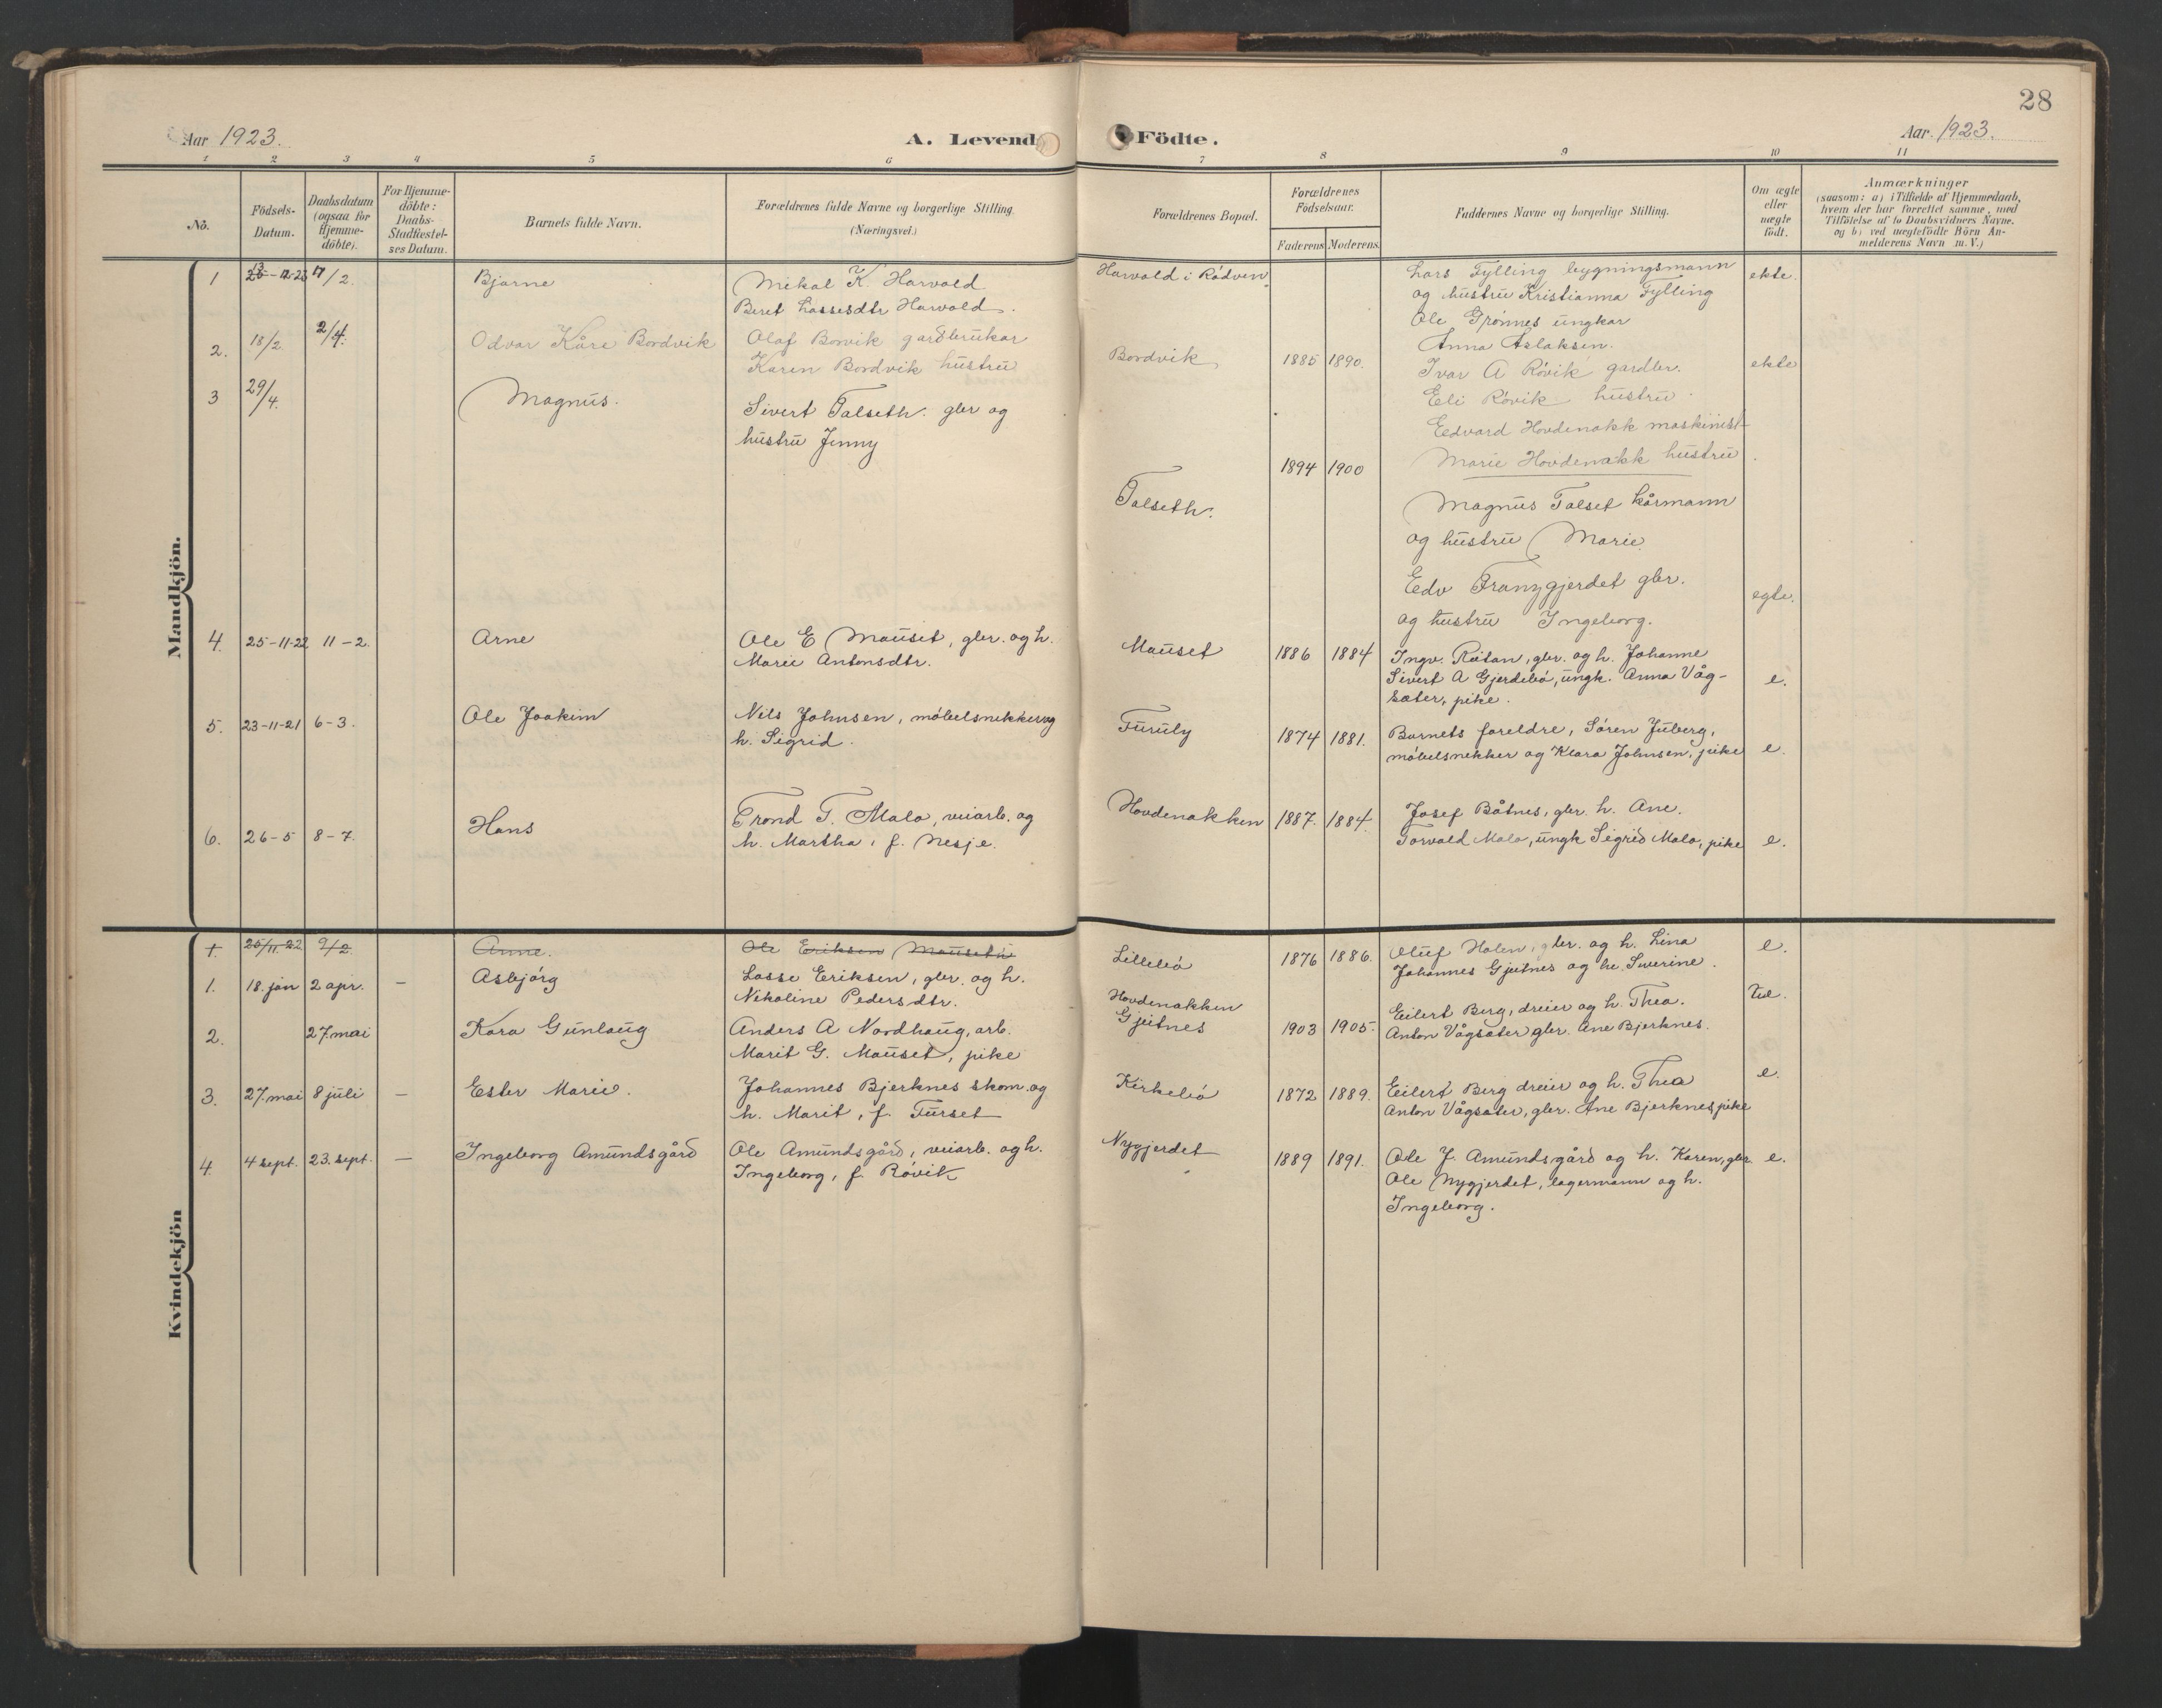 28
Aar 1923.
A. Levend
Födte.
Aar 1923.
1 2 3 4 5 6 7 8 9 10 11
No.
Födsels-Datum.
Daabsdatum (ogsaa for Hjemme-döbte).
For Hjemme-döbte: Daabs-Stadfæstel-ses Datum.
Barnets fulde Navn.
Forældrenes fulde Navne og borgerlige Stilling. (Næringsvei.)
Forældrenes Bopæl.
Forældrenes Födselsaar.
Faderens Moderens
Faddernes Navne og borgerlige Stilling.
Om ægte eller uægte födt.
Anmærkninger
(saasom: a) i Tilfælde af Hjemmedaab,
hvem der har forrettet samme, med
Tilföielse af to Daabsvidners Navne.
og b) ved uægtefödte Börn An-
melderens Navn m. V.)
Mandkjön.
1 17/2. Bjarne Mikal K. Harvold Harvold i Rödven Lars Fylling bygningsmann ekte.
Beret Lassesdtr Harvold. og hustru Kristianna Fylling
Ole Grönnes ungkar
Anna Aslaksen.
2. 18/2. 2/4. Odvar Kåre Bordvik Olaf Borvik gardbrukar Bordvik 1885 1890. Ivar A Rövik gardbr. ekte
Karen Bordvik hustru Eli Rövik hustru
Edvard Hovdenakk maskinist
Marie Hovdenakk hustru
3 29/4. Magnus. Sivert Talseth. gbr og Talseth. 1894 1900 Magnus Talset kårmann
hustru Jenny og hustru Marie.
Edv Tranygjerdet gbr. egte.
og hustru Ingeborg.
4. 25-11-22 11-2. Arne Ole E Mauset, gbr. og h. Mauset 1886 1884 Ingv. Roitan, gbr. og h. Johanne
Marie Antonsdtr. Sivert A Gjerdebö, ungk. Anna Våg- e.
sæter, pike.
5. 23-11-21 6-3. Ole Joakim Nils Johnsen, möbelsnekker og Furuly 1874 1881. Barnets foreldre, Sören Juberg,
h. Sigrid. möbelsnekker og Klara Johnsen, pike e.
6. 26-5 8-7. Hans Trond T. Malo, veiarb. og Hovdenakken 1887. 1884. Josef Båtnes, gbr. h. Ane.
h. Martha, f. Nesje. Torvald Malo, ungk Sigrid Malo, pike e.
Kvindekjön
1. 25/11.22 9/2. Anne. Ole Eriksen Mauseth
1. 18. jan 2 apr. - Asbjörg Lasse Eriksen, gbr. og h. Lillebö 1876 1886. Oluf Holen, gbr. og h. Lina e.
Nikoline Pedersdtr. Johannes Gjeitnes og h. Severine.
2. 27. mai Kara Gunlaug Anders A Nordhaug, arb. Hovdenakken Eilert Berg, dreier og h. Thea.
Marit G. Mauset, pike Gjeitnes 1903 1905. Anton Vågsæter gbr. Ane Bjerknes.
3. 27. mai 8 juli - Ester Marie. Johannes Bjerknes skom. og Kirkebö 1872 1889. Eilert Berg dreier og h. Thea e.
h. Marit, f. Furset Anton Vågsæter, gbr. Ane Bjerknes, pike
4 4 sept. 23. sept. - Ingeborg Amundsgård Ole Amundsgård, veiarb. og h. Nygjerdet 1889 1891. Ole J. Amundsgård og h. Karen, gbr. e.
Ingeborg, f. Rövik Ole Nygjerdet, lagermann og h.
Ingeborg.